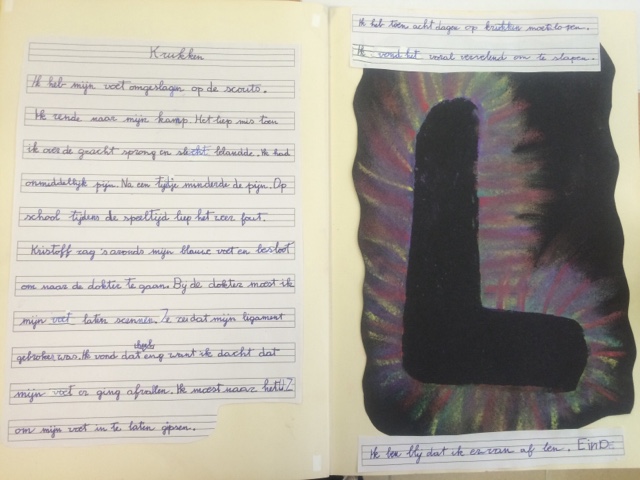 Krukken
Ik heb mijn voet omgeslagen op de scouts.
Ik rende naar mijn kamp. Het liep mis toen
ik over de gracht sprong en slecht belandde. Ik had
onmiddellijk pijn. Na een tijdje minderde de pijn. Op
school tijdens de speeltijd liep het zeer fout.
Kristoff zag 's avonds mijn blauwe voet en besloot
om naar de dokter te gaan. Bij de dokter moest ik
mijn voet laten scennen. Ze zei dat mijn ligament
gebroken was. Ik vond dat eng want ik dacht dat
mijn voet er ging afvallen. Ik moest naar het UZ
om mijn voet in te laten gipsen.
Ik heb toen acht dagen op krukken moeten lopen.
Ik vond het vooral vervelend om te slapen.
Ik ben blij dat ik er van af ben. EinDE